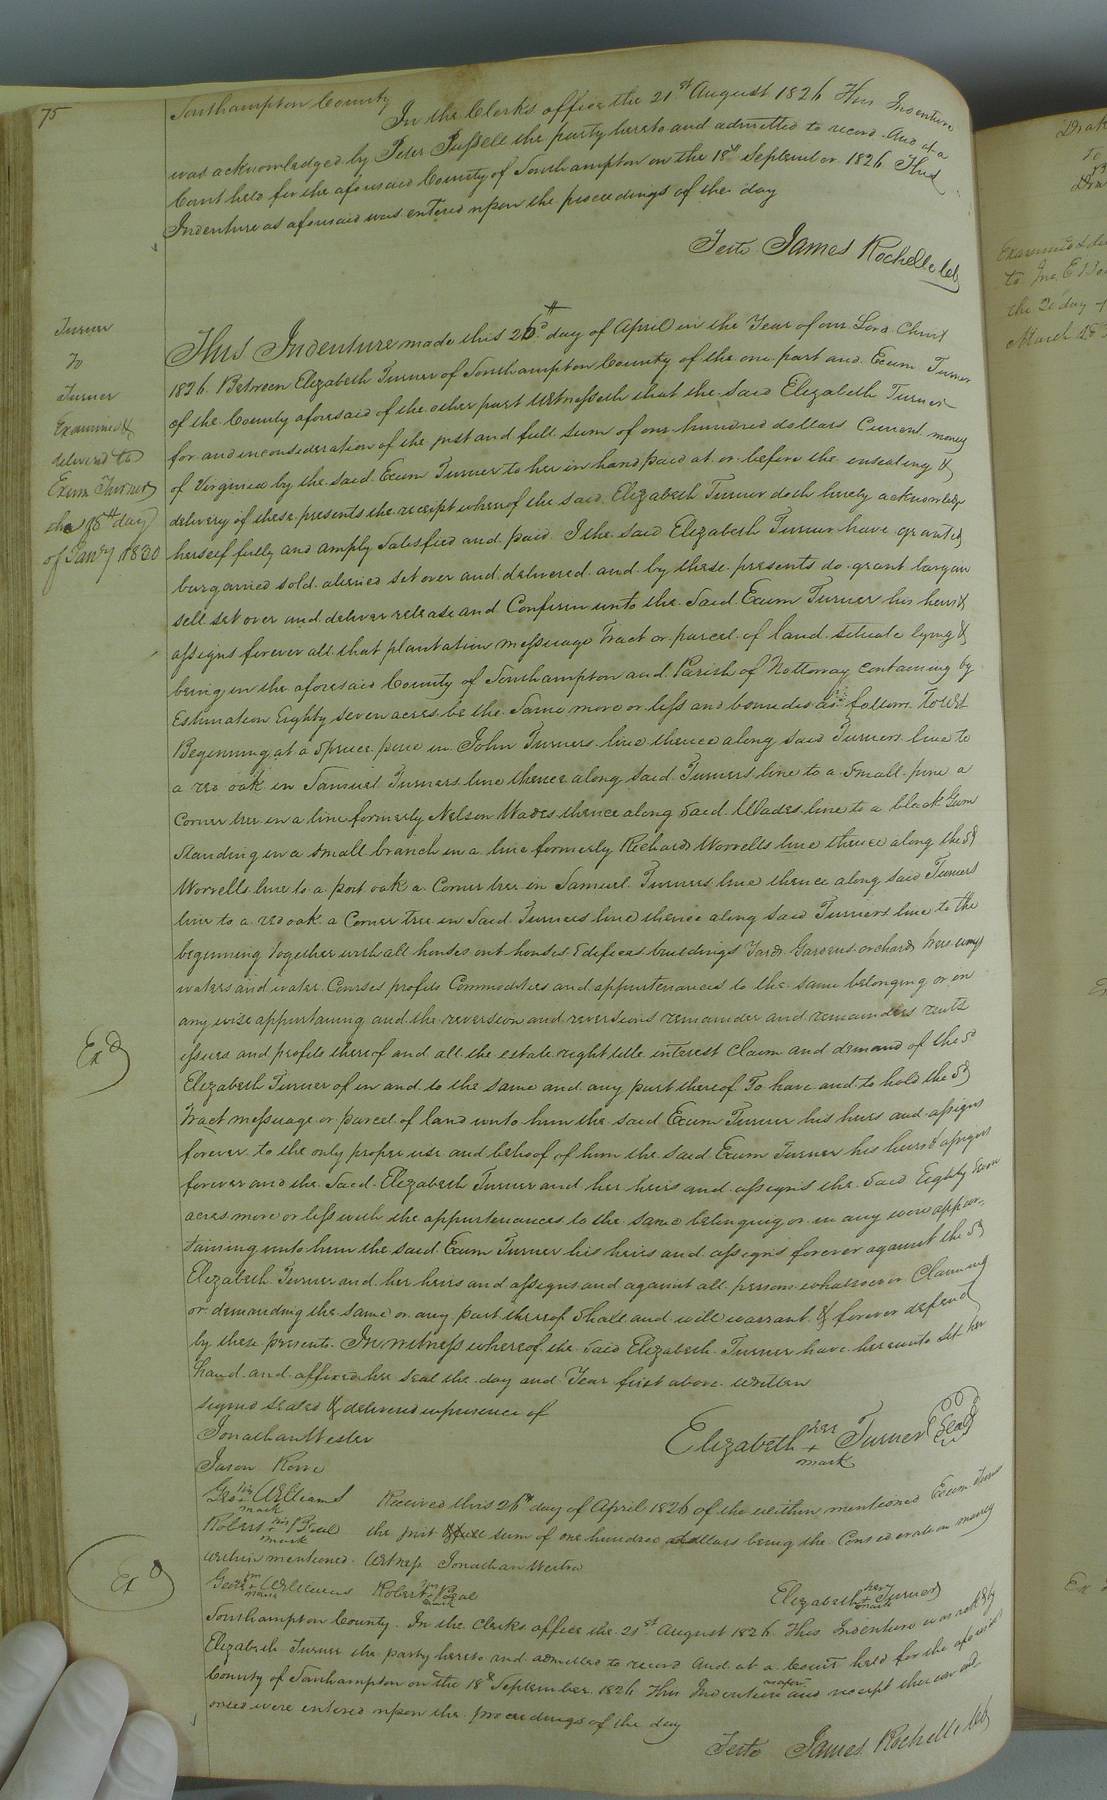 75
Southampton County
In the Clerks office the 21st August 1826 This Indenture
was acknowledged by Peter Pussell the party hereto and admitted to record. And at a
Court held for the aforesaid County of Southampton on the 18th September 1826 This
Indenture as aforesaid was entered upon the proceedings of the day
Teste James Rochelle clk
Turner
To
Turner
Examined &
delivered to
Exum Turner
the 18th day
of Jany 1830
This Indenture made this 26th day of April in the Year of our Lord Christ
1826 Between Elizabeth Turner of Southampton County of the one part and Exum Turner
of the County aforesaid of the other part Witnesseth that the said Elizabeth Turner
for and inconsideration of the just and full sum of one hundred dollars Current money
of Virginia by the said Exum Turner to her in hand paid at or before the ensealing &
delivery of these presents the receipt whereof the said Elizabeth Turner doth hereby acknowledge
herself fully and amply Satisfied and paid. I the said Elizabeth Turner have granted
bargained sold aliened set over and delivered and by these presents do grant bargain
sell set over and deliver release and Confirm unto the Said Exum Turner his heirs &
assigns forever all that plantation messuage Tract or parcel of land situate lying &
being in the aforesaid County of Southampton and Parish of Nottoway Containing by
Estimation Eighty seven acres be the Same more or less and bounded as follows Towit
Beginning at a Spruce pine in John Turners line thence along said Turners line to
a red oak in Samuel Turners line thence along said Turners line to a small pine a
Corner tree in a line formerly Nelson Wades thence along Said Wades line to a black Gum
Standing in a small branch in a line formerly Richard Worrells line thence along the sd
Worrells line to a post oak a Corner tree in Samuel Turners line thence along said Turners
line to a red oak a Corner Tree in Said Turners line thence along said Turners line to the
beginning Together with all houses out houses Edifices buildings Yards Gardens orchards ways
waters and water Courses profits Commodities and appurtenances to the same belonging or in
any wise appurtaining and the reversion and reversions remainder and remainders rents
issues and profits thereof and all the estate right title interest Claim and demand of the sd
Elizabeth Turner of in and to the same and any part thereof To have and to hold the sd
Tract messuage or parcel of land unto him the said Exum Turner his heirs and assigns
forever to the only proper use and behoof of him the said Exum Turner his heirs & assigns
forever and the Said Elizabeth Turner and her heirs and assigns the Said Eighty seven
acres more or less with the appurtenances to the same belonging or in any wise appur-
taining unto him the said Exum Turner his heirs and assigns forever against the sd
Elizabeth Turner and her heirs and assigns and against all persons whatsoever Claiming
or demanding the same or any part thereof Shall and will warrant & forever defend
by these presents. In witness whereof the Said Elizabeth Turner have hereunto Set her
hand and affixed her seal the day and Year first above written
signed sealed & delivered in presence of
Jonathan Wester
Jason Rowe
Elizabeth her + mark Turner (Seal)
Geo his + mark Williams
Received this 26th day of April 1826 of the within mentioned Exum Turner
Robert his + mark Beal
the just & full sum of one hundred dollars being the Consideration money
within mentioned Witness Jonathan Wester
George his + mark Williams Robert his + mark Beal
Elizabeth her + mark Turner
Southampton County. In the Clerks office the 21st August 1826 This Indenture was ackd by
Elizabeth Turner the party hereto and admitted to record And at a Court held for the aforesaid
County of Southampton on the 18th September 1826 This Indenture and receipt thereon end-
orsed were entered upon the proceedings of the day
Teste James Rochelle clk
Exd
Exd